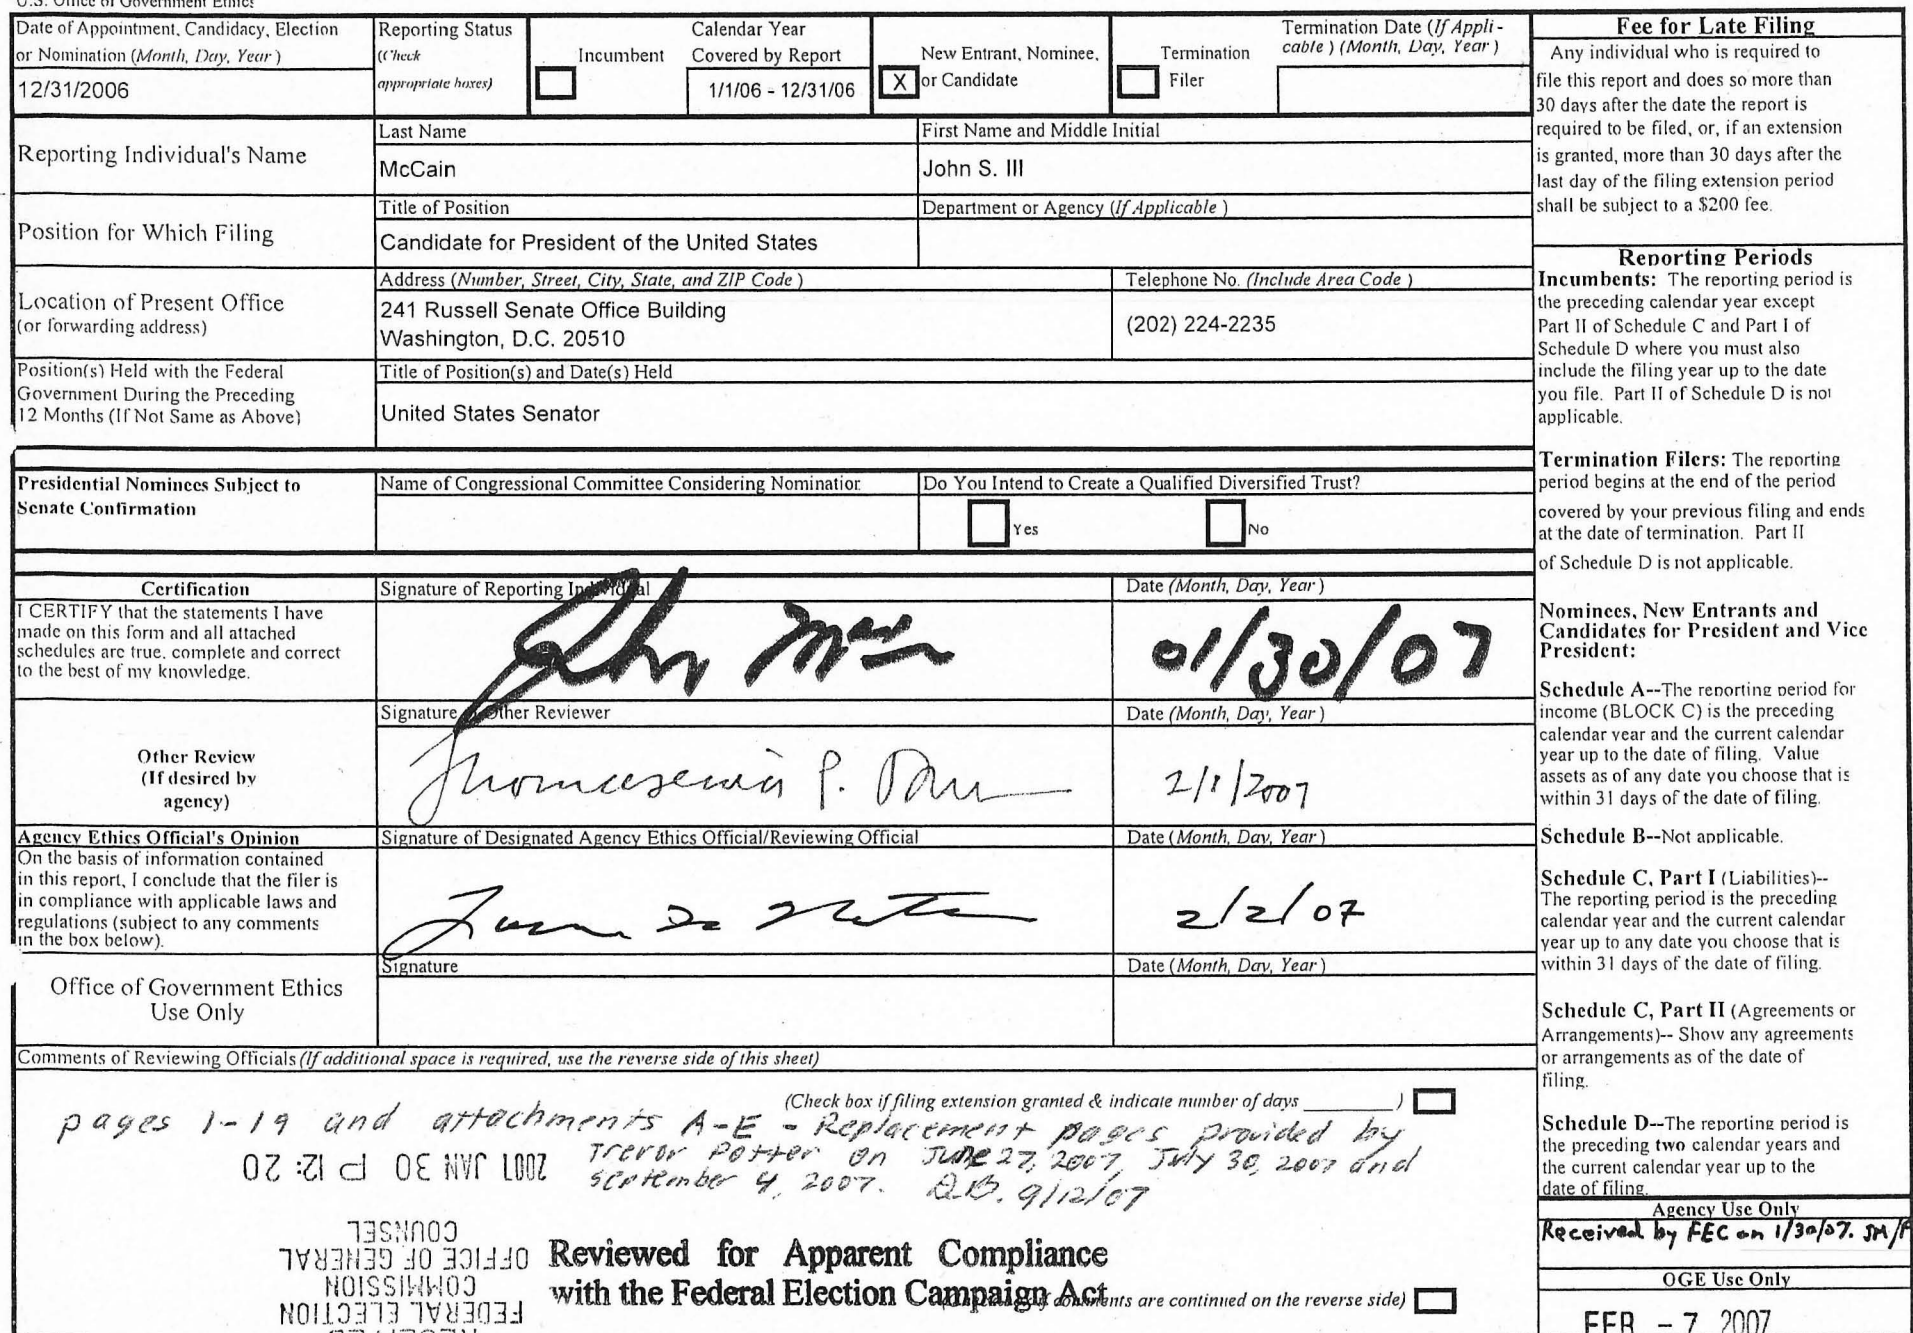 U.S. Office of Government Ethics
Date of Appointment, Candidacy, Election
or Nomination (Month, Day, Year)
12/31/2006
Reporting Status
(Check
appropriate boxes)
Incumbent
Calendar Year
Covered by Report
1/1/06 - 12/31/06
X
New Entrant, Nominee,
or Candidate
Termination
Filer
Termination Date (If Appli-
cable) (Month, Day, Year)
Reporting Individual's Name
Last Name
McCain
First Name and Middle Initial
John S. III
Position for Which Filing
Title of Position
Candidate for President of the United States
Department or Agency (If Applicable)
Location of Present Office
(or forwarding address)
Address (Number, Street, City, State, and ZIP Code)
241 Russell Senate Office Building
Washington, D.C. 20510
Telephone No. (Include Area Code)
(202) 224-2235
Position(s) Held with the Federal
Government During the Preceding
12 Months (If Not Same as Above)
Title of Position(s) and Date(s) Held
United States Senator
Presidential Nominees Subject to
Senate Confirmation
Name of Congressional Committee Considering Nomination
Do You Intend to Create a Qualified Diversified Trust?
Yes
No
Certification
I CERTIFY that the statements I have
made on this form and all attached
schedules are true, complete and correct
to the best of my knowledge.
Signature of Reporting Individual
John McCain
Date (Month, Day, Year)
01/30/07
Other Review
(If desired by
agency)
Signature of Other Reviewer
Thomasenia P.
Date (Month, Day, Year)
2/1/2007
Agency Ethics Official's Opinion
On the basis of information contained
in this report, I conclude that the filer is
in compliance with applicable laws and
regulations (subject to any comments
in the box below).
Signature of Designated Agency Ethics Official/Reviewing Official
Date (Month, Day, Year)
2/2/07
Office of Government Ethics
Use Only
Signature
Date (Month, Day, Year)
Comments of Reviewing Officials (If additional space is required, use the reverse side of this sheet)
(Check box if filing extension granted & indicate number of days ________)
pages 1-19 and attachments A-E - Replacement pages provided by
Trevor Potter on June 27, 2007, July 30, 2007 and
September 4, 2007. 9/12/07
2007 JAN 30 P 12: 20
RECEIVED
FEDERAL ELECTION
COMMISSION
OFFICE OF GENERAL
COUNSEL
Reviewed for Apparent Compliance
with the Federal Election Campaign Act
comments are continued on the reverse side)
Fee for Late Filing
Any individual who is required to
file this report and does so more than
30 days after the date the report is
required to be filed, or, if an extension
is granted, more than 30 days after the
last day of the filing extension period
shall be subject to a $200 fee.
Reporting Periods
Incumbents: The reporting period is
the preceding calendar year except
Part II of Schedule C and Part I of
Schedule D where you must also
include the filing year up to the date
you file. Part II of Schedule D is not
applicable.
Termination Filers: The reporting
period begins at the end of the period
covered by your previous filing and ends
at the date of termination. Part II
of Schedule D is not applicable.
Nominees, New Entrants and
Candidates for President and Vice
President:
Schedule A--The reporting period for
income (BLOCK C) is the preceding
calendar year and the current calendar
year up to the date of filing. Value
assets as of any date you choose that is
within 31 days of the date of filing.
Schedule B--Not applicable.
Schedule C, Part I (Liabilities)--
The reporting period is the preceding
calendar year and the current calendar
year up to any date you choose that is
within 31 days of the date of filing.
Schedule C, Part II (Agreements or
Arrangements)-- Show any agreements
or arrangements as of the date of
filing.
Schedule D--The reporting period is
the preceding two calendar years and
the current calendar year up to the
date of filing.
Agency Use Only
Received by FEC on 1/30/07.
OGE Use Only
FEB - 7 2007